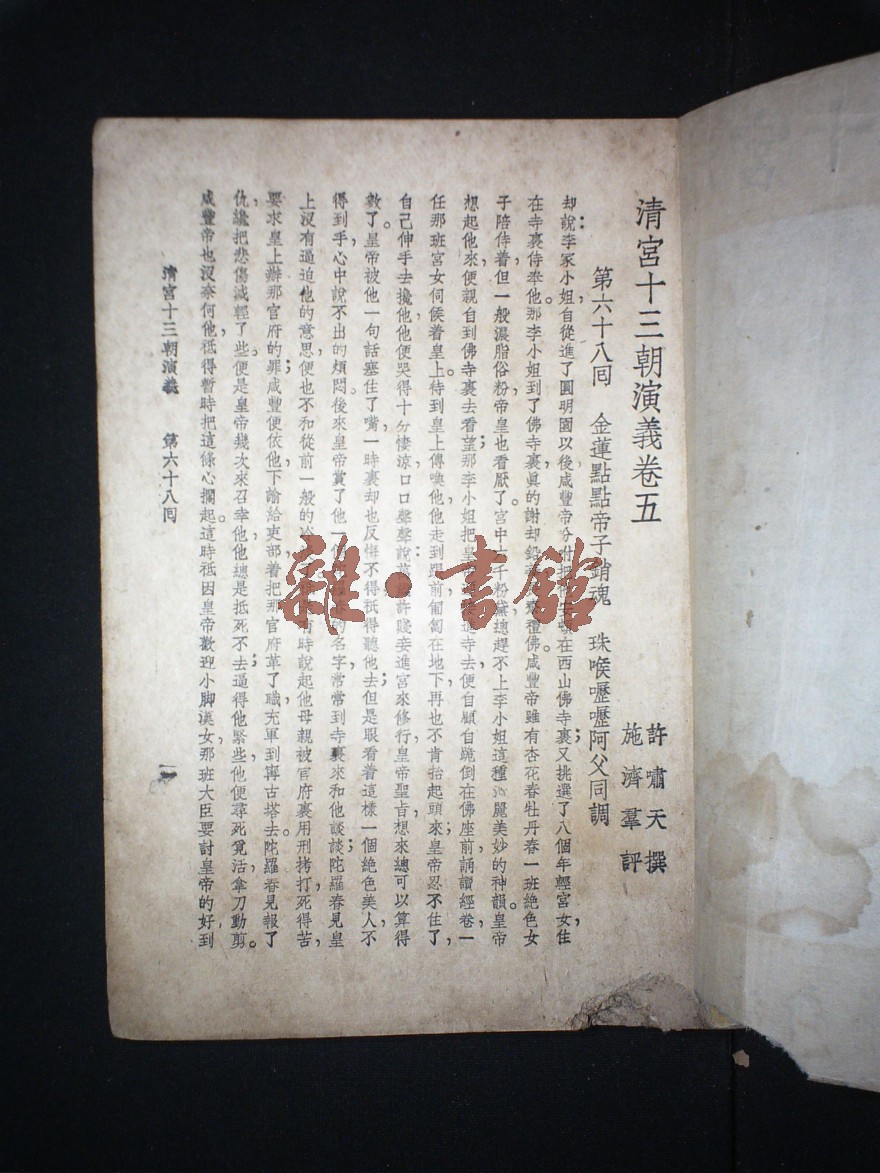 清宮十三朝演義卷五
許嘯天撰
施濟羣評
第六十八囘　金蓮點點帝子銷魂　珠喉嚦嚦阿父同調
却說李家小姐自從進了圓明園以後咸豐帝分付把在西山佛寺裏又挑選了八個年輕宮女住
在寺裏侍奉他那李小姐到了佛寺裏眞的謝却鉛禮佛咸豐帝雖有杏花春牡丹春一班絕色女
子陪侍着但一般濃脂俗粉帝皇也看厭了宮中千粉黛總趕不上李小姐這種美妙的神韻皇帝
想起他來便親自到佛寺裏去看望那李小姐把皇進寺去便自顧自跪倒在佛座前誦讀經卷一
任那班宮女伺候着皇上待到皇上傳喚他他走到跟前匍匐在地下再也不肯抬起頭來皇帝忍不住了
自己伸手去攙他他便哭得十分悽涼口口聲聲說許賤妾進宮來修行皇帝聖旨想來總可以算得
數了皇帝被他一句話塞住了嘴一時裏却也反悔不得祇得聽他去但是眼看着這樣一個絕色美人不
得到手心中說不出的煩悶後來皇帝賞了他一個的名字常常到寺裏來和他談談陀羅春見皇
上沒有逼迫他的意思便也不和從前一般的有時說起他母親被官府裏用刑拷打死得苦
要求皇上辦那官府的罪咸豐便依他下諭給吏部着把那官府革了職充軍到寗古塔去陀羅春見報了
仇讒把悲傷減輕了些便是皇帝幾次來召幸他他總是抵死不去逼得他緊些他便尋死覓活拿刀動剪
咸豐帝也沒奈何他祇得暫時把這條心擱起這時祇因皇帝歡迎小脚漢女那班大臣要討皇帝的好到
清宮十三朝演義　第六十八囘　一
雜·書館